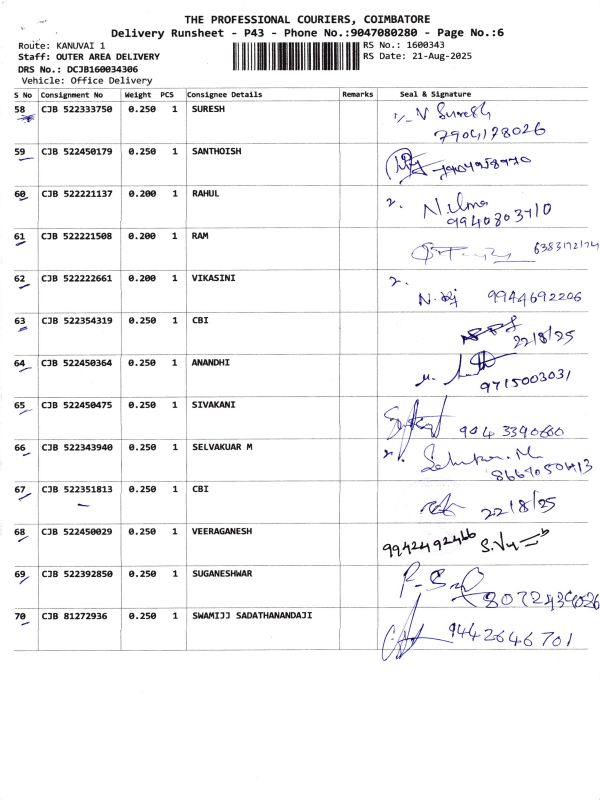 THE PROFESSIONAL COURIERS, COIMBATORE
Delivery Runsheet - P43 - Phone No.:9047080280 - Page No.:6
Route: KANUVAI 1 RS No.: 1600343
Staff: OUTER AREA DELIVERY RS Date: 21-Aug-2025
DRS No.: DCJB160034306
Vehicle: Office Delivery
S No Consignment No Weight PCS Consignee Details Remarks Seal & Signature
58 CJB 522333750 0.250 1 SURESH V Suresh
7904178026
59 CJB 522450179 0.250 1 SANTHOISH
60 CJB 522221137 0.200 1 RAHUL
9940803710
61 CJB 522221508 0.200 1 RAM
62 CJB 522222661 0.200 1 VIKASINI 9944692206
63 CJB 522354319 0.250 1 CBI
22/8/25
64 CJB 522450364 0.250 1 ANANDHI
9715003031
65 CJB 522450475 0.250 1 SIVAKANI
9043390660
66 CJB 522343940 0.250 1 SELVAKUAR M
67 CJB 522351813 0.250 1 CBI 22/8/25
68 CJB 522450029 0.250 1 VEERAGANESH 9942492466
69 CJB 522392850 0.250 1 SUGANESHWAR
8072439026
70 CJB 81272936 0.250 1 SWAMIJJ SADATHANANDAJI 9442646701